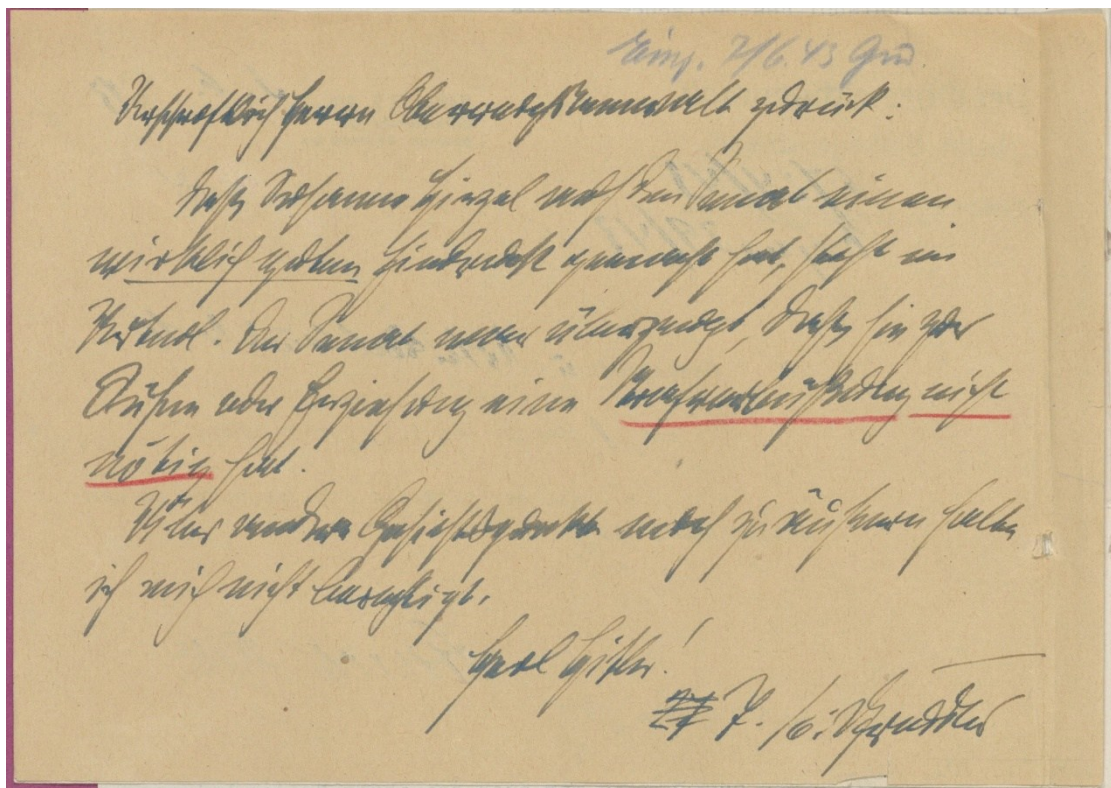 Eing. 7/6.43
Urschriftlich Herrn Oberreichsanwalt zurück.
Daß Susanne Hirzel auf den Senat einen
wirklich guten Eindruck gemacht hat, steht im
Urteil. Der Senat war überzeugt, daß sie zur
Sühne oder Erziehung eine Strafverbüßung nicht
nötig hat.
Über andere Gesichtspunkte mich zu äußern halte
ich mich nicht berechtigt.
Heil Hitler!